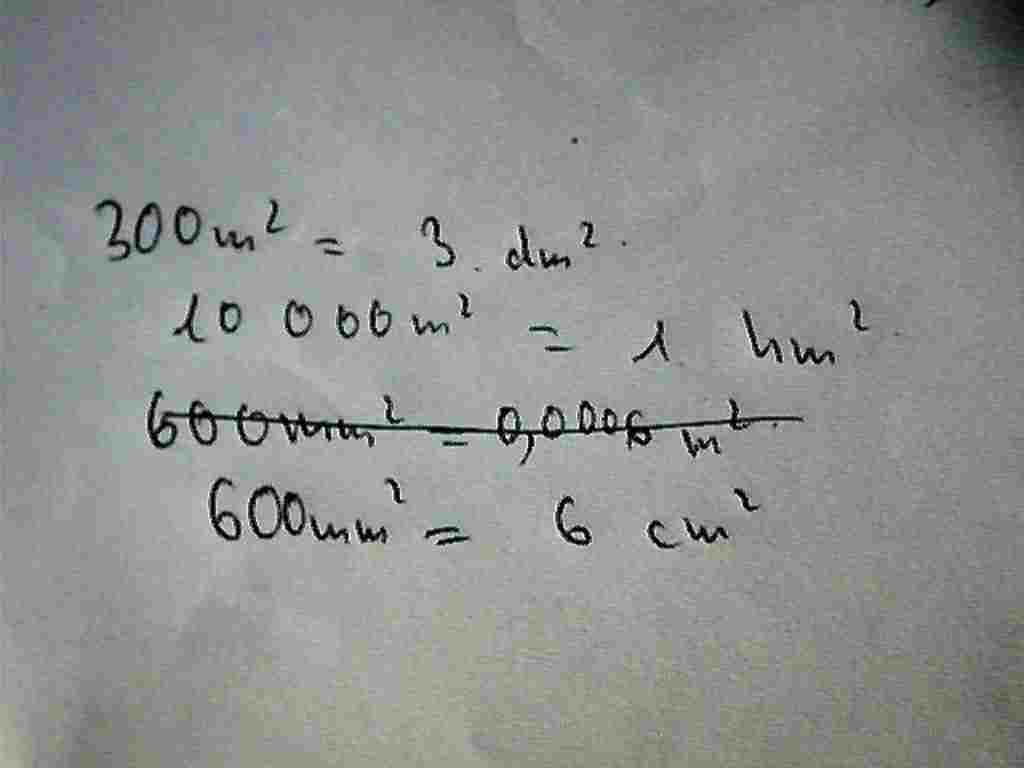 300m² = 3 dm².
10 000m² = 1 hm²
600mm² = 0,0006 m².
600mm² = 6 cm²